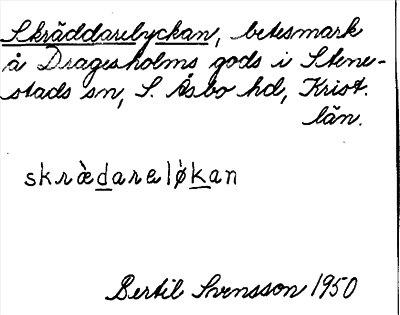 Skräddarelyckan, betesmark
å Dragesholms gods i Stene-
stads sn, S. Åsbo hd, Krist.
län.
skrädarelø̀kan
Bertil Svensson 1950